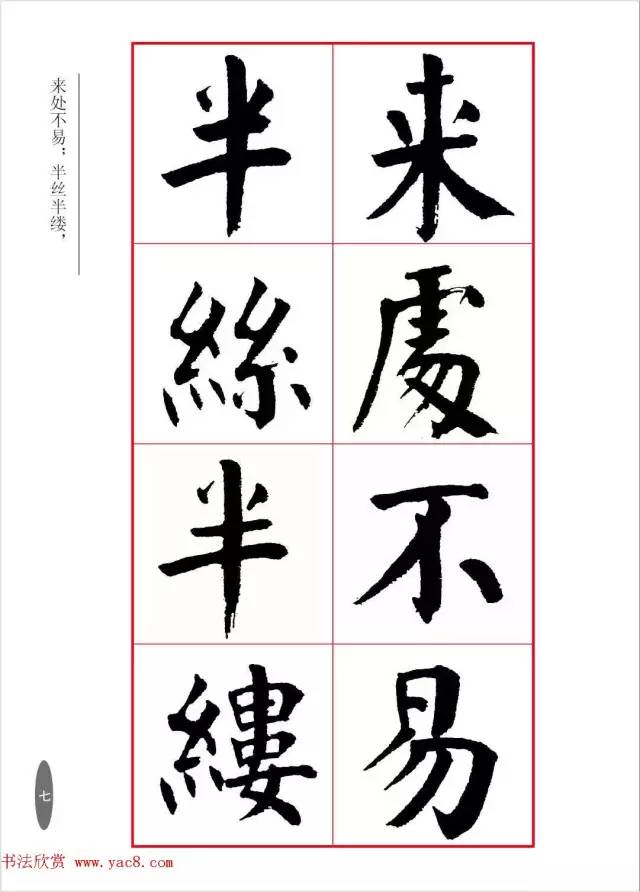 来處不易
半絲半縷
来处不易；半丝半缕，
七
书法欣赏 www.yac8.com